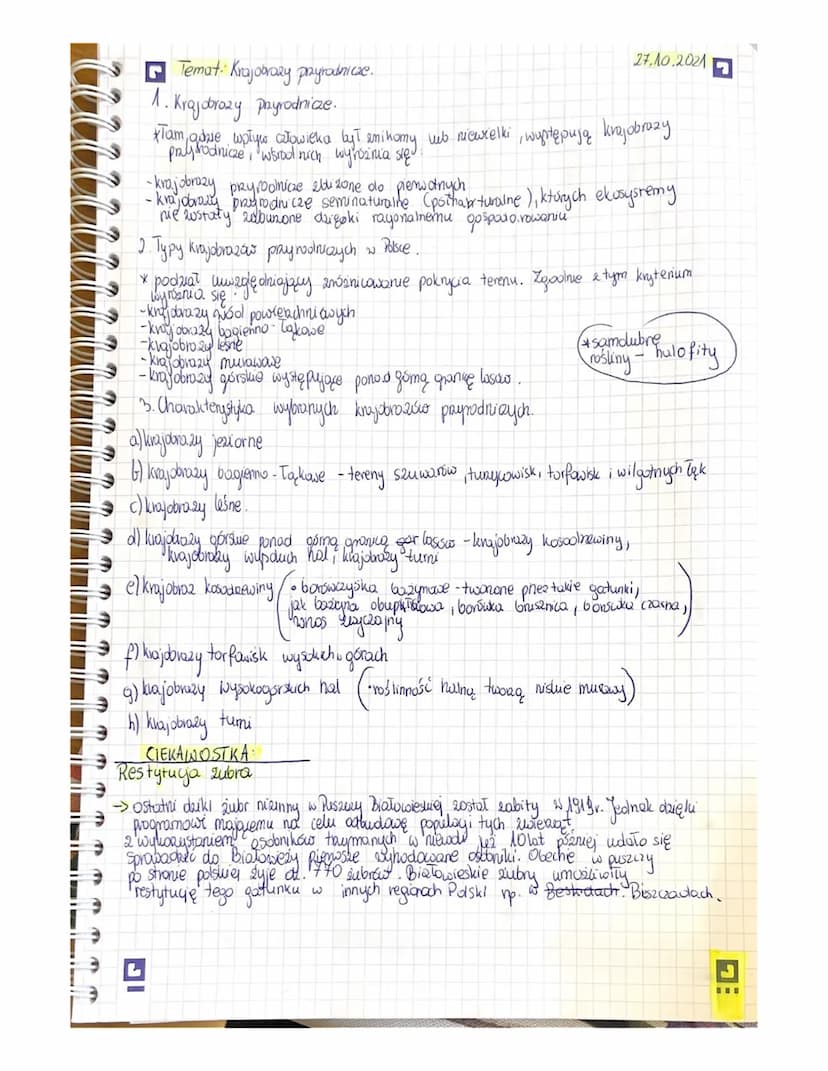 27.10.2021
Temat: Krajobrazy przyrodnicze.
1. Krajobrazy przyrodnicze.
*Tam, gdzie wpływ człowieka był znikomy lub niewielki, występują krajobrazy
przyrodnicze, wśród nich wyróżnia się:
- krajobrazy przyrodnicze zbliżone do pierwotnych
- krajobrazy przyrodnicze seminaturalne ( ), których ekosystemy
nie zostały zaburzone dzięki racjonalnemu gospodarowaniu
2. Typy krajobrazów przyrodniczych w Polsce.
* podział uwzględniający zróżnicowanie pokrycia terenu. Zgodnie z tym kryterium
wyróżnia się:
- krajobrazy wód powierzchniowych
- krajobrazy bagienno-łąkowe
- krajobrazy leśne
- krajobrazy murawowe
- krajobrazy górskie występujące ponad górną granicę lasów.
*samolubre
rośliny - halofity
3. Charakterystyka wybranych krajobrazów przyrodniczych.
a) krajobrazy jeziorne
b) krajobrazy bagienno-łąkowe - tereny szuwarów, turzycowisk, torfowisk i wilgotnych łąk
c) krajobrazy leśne.
d) krajobrazy górskie ponad górną granicą lasów - krajobrazy kosodrzewiny,
krajobrazy hal, krajobrazy turni
e) krajobraz kosodrzewiny (• borówczyska bażynowe - tworzone przez takie gatunki,
jak bażyna obupłciowa, borówka brusznica, borówka czarna,
wrzos zwyczajny)
f) krajobrazy torfowisk wysokich górach
g) krajobrazy wysokogórskich hal (• roślinność halną tworzą niskie murawy)
h) krajobrazy turni
CIEKAWOSTKA:
Restytucja żubra
→ Ostatni dziki żubr nizinny w Puszczy Białowieskiej został zabity w 1919r. Jednak dzięki
programowi mającemu na celu odbudowę populacji tych zwierząt
z wykorzystaniem osobników trzymanych w niewoli już 10 lat później udało się
sprowadzić do Białowieży pierwsze wyhodowane osobniki. Obecnie w puszczy
po stronie polskiej żyje ok. 770 żubrów. Białowieskie żubry umożliwiły
restytucję tego gatunku w innych regionach Polski np. w Beskidach. Bieszczadach.